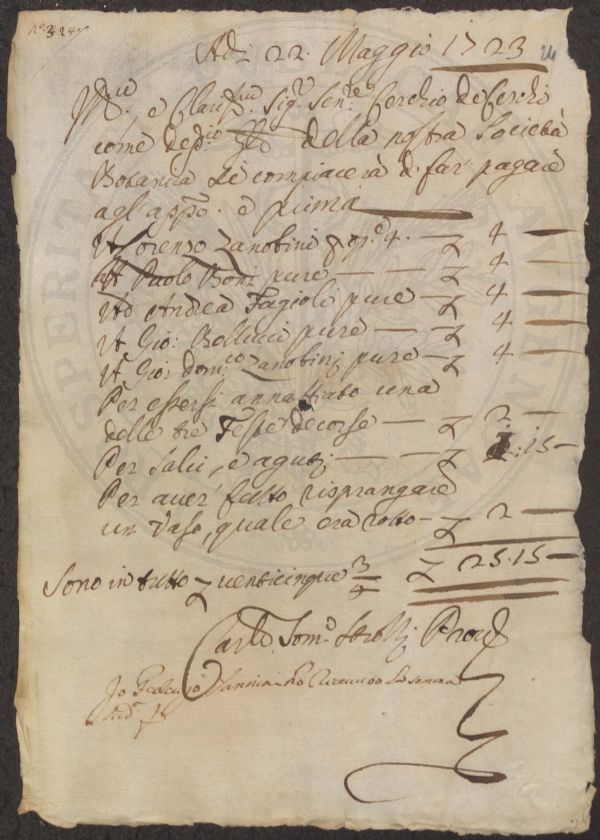 N.º 324
Adi 22. Maggio 1723
24
Ill.re e Clariss.mo Sig.r Sen.re Cerchio de Cerchi
come Dep.to della nostra Società
Botanica si compiacerà di far pagare
agl'appo. e prima
A Lorenzo Zanobini p op.e 4. — £ 4 —
A Paolo Boni pure — — £ 4 —
Ad Andrea Fagioli pure — £ 4 —
A Gio: Bellucci pure — £ 4 —
A Gio: Dom.co Zanobini pure — £ 4 —
Per essersi annaffiato una
delle tre Feste decorse — £ 2 —
Per Salci, e aguti — — £ 1:15 —
Per auer fatto risprangare
un Vaso, quale era rotto — £ 2 —
£ 25.15 —
Sono in tutto £ uenticinque 3/4
Carlo Tom.o Strozzi Prou.re
Io